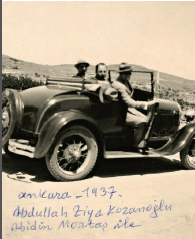 ankara - 1937.
Abdullah Ziya Kozanoğlu
Abidin Mortaş ile